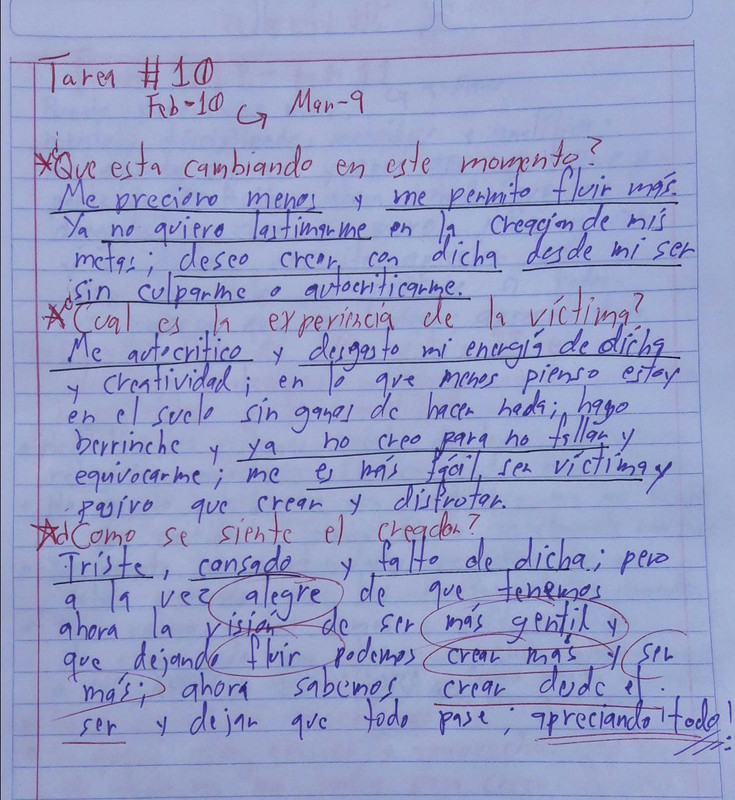 Tarea # 10
Feb-10 ↳ Mar-9
*¿Que esta cambiando en este momento?
Me preciono menos y me permito fluir más.
Ya no quiero lastimarme en la creación de mis
metas; deseo crear con dicha desde mi ser
sin culparme o autocriticarme.
*¿Cual es la experiencia de la víctima?
Me autocritico y desgasto mi energía de dicha
y creatividad; en lo que menos pienso estoy
en el suelo sin ganas de hacer nada; hago
berrinche y ya no creo para no fallar y
equivocarme; me es más fácil ser víctima y
pasivo que crear y disfrutar.
*¿Como se siente el creador?
Triste, cansado y falto de dicha; pero
a la vez alegre de que tenemos
ahora la visión de ser más gentil y
que dejando fluir podemos crear más y ser
más; ahora sabemos crear desde el
ser y dejar que todo pase; apreciando todo!